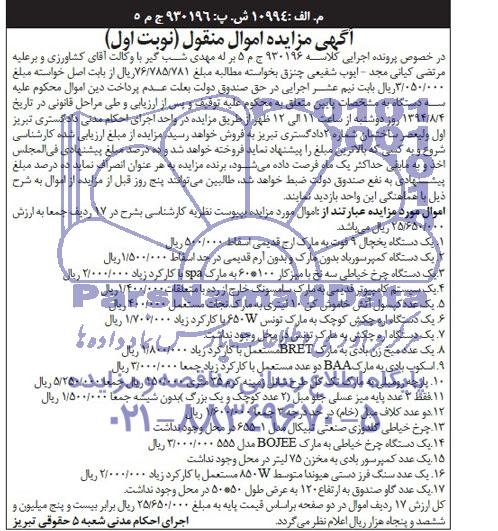 م. الف: ۱۰۹۹۴ ش. پ: ۹۳۰۱۹۶ ج م ۵
آگهی مزایده اموال منقول (نوبت اول)
در خصوص پرونده اجرایی کلاسه ۹۳۰۱۹۶ ج م ۵ بر له مهدی شب گیر با وکالت آقای کشاورزی و برعلیه
مرتضی کیانی مجد - ایوب شفیعی چنزق بخواسته مطالبه مبلغ ۷۶/۷۸۵/۷۸۱ ریال از بابت اصل خواسته مبلغ
۳/۰۵۰/۰۰۰ ریال بابت نیم عشر اجرایی در حق صندوق دولت بعلت عدم پرداخت دین اموال محکوم علیه
سه دستگاه به مشخصات پایین متعلق به محکوم علیه توقیف و پس از ارزیابی و طی مراحل قانونی در تاریخ
۱۳۹۴/۸/۴ روز دوشنبه از ساعت ۱۱ الی ۱۲ ظهر از طریق مزایده در واحد اجرای احکام مدنی دادگستری تبریز
اول ولیعصر ساختمان شماره ۲ دادگستری تبریز به فروش خواهد رسید. مزایده از مبلغ ارزیابی شده کارشناسی
شروع و به کسی که بالاترین مبلغ را پیشنهاد نماید فروخته خواهد شد و ده درصد مبلغ پیشنهادی فی المجلس
اخذ و مابقی حداکثر یک ماه فرصت داده می‌شود، برنده مزایده به هر عنوان انصراف نماید ده درصد مبلغ
پیشنهادی به نفع صندوق دولت ضبط خواهد شد، طالبین می‌توانند پنج روز قبل از مزایده از اموال به شرح
ذیل با هماهنگی این واحد بازدید نمایند.
اموال مورد مزایده عبارتند از: اموال مورد مزایده بپیوست نظریه کارشناسی بشرح در ۱۷ ردیف جمعا به ارزش
۲۵/۶۵۰/۰۰۰ ریال می‌باشد.
۱. یک دستگاه یخچال ۹ فوت به مارک ارج قدیمی اسقاط ۵۰۰/۰۰۰ ریال
۲. یک دستگاه کمپرسور باد بدون مارک و بدون آرم قدیمی در حد اسقاط ۱/۵۰۰/۰۰۰ ریال
۳. یک دستگاه چرخ خیاطی سه نخ با میز کار ۱۰۰*۶۰ به مارک spa با کارکرد زیاد ۲/۰۰۰/۰۰۰ ریال
۴. یک سیستم کامپیوتر قدیمی به مارک سامسونگ خارج از رده با متعلقات ۱/۴۰۰/۰۰۰ ریال
۵. یک عدد کپسول آتش خاموش کن ۱۰ لیتری به مارک نجات مستعمل ۴۰۰/۰۰۰ ریال
۶. یک دستگاه اره چکش کوچک به مارک تونس ۶۵۰W با کارکرد زیاد ۱/۷۰۰/۰۰۰ ریال
۷. یک دستگاه اره چکش به مارک تونس در محل وجود نداشت.
۸. یک عدد میخ زن بادی به مارک BRET مستعمل با کارکرد زیاد ۱/۸۰۰/۰۰۰ ریال
۹. اسکوپ بادی به مارک BAA دو عدد مستعمل با کارکرد زیاد جمعا ۳/۰۰۰/۰۰۰ ریال
۱۱. فقط ۳ عدد پایه میز عسلی جلو مبل (۲ عدد کوچک و یک بزرگ) بدون شیشه جمعا ۱/۵۰۰/۰۰۰ ریال
۱۲. دو عدد کلاف مبل (خام) در حد درجه ۲ جمعا ۱/۶۰۰/۰۰۰ ریال
۱۳. چرخ خیاطی گلدوزی صنعتی تیپکال مدل ۱-۶۵۵ در محل وجود نداشت
۱۴. یک دستگاه چرخ خیاطی به مارک BOJEE مدل ۵۵۵ ۳/۰۰۰/۰۰۰ ریال
۱۵. یک عدد کمپرسور بادی به مخزن ۷۵ لیتر در محل وجود نداشت
۱۶. یک عدد سنگ فرز دستی هیوندا متوسط ۸۵۰W مستعمل با کارکرد زیاد ۲/۰۰۰/۰۰۰ ریال
۱۷. یک عدد گاو صندوق به ارتفاع ۱۲۰ به عرض طول ۵۰*۵۰ در محل وجود نداشت.
کل ارزش ۱۷ ردیف اموال در دو صفحه براساس قیمت پایه به مبلغ ۲۵/۶۵۰/۰۰۰ ریال برابر بیست و پنج میلیون و
ششصد و پنجاه هزار ریال اعلام نظر می‌گردد.
اجرای احکام مدنی شعبه ۵ حقوقی تبریز
ParsNamadData
۰۲۱-۸۸۳۴۹۶۷۰-۵